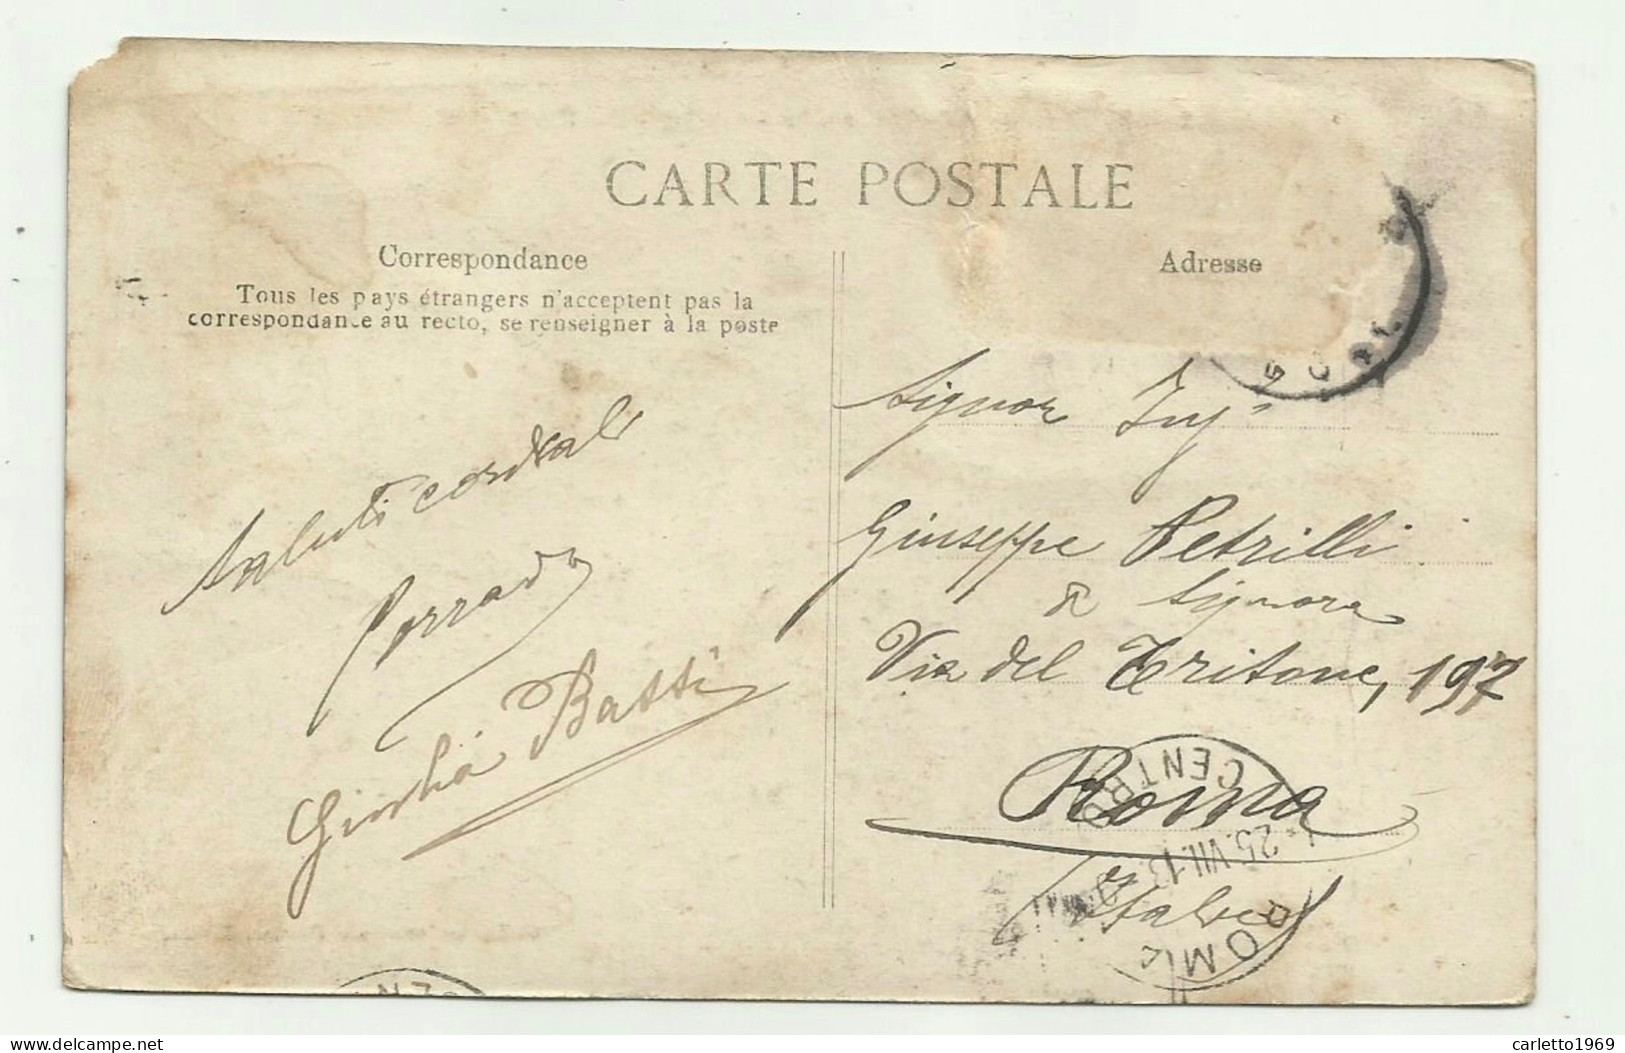 CARTE POSTALE
Correspondance
Tous les pays étrangers n'acceptent pas la
correspondance au recto, se renseigner à la poste
Adresse
Saluti cordiali
Corrado
Giulia Bassi
Signor Ing.
Giuseppe Petrilli
& Signora
Via del Tritone, 197
Roma
Italia
ROMA
CENTRO
25.VII.13
CEN
carletto1969